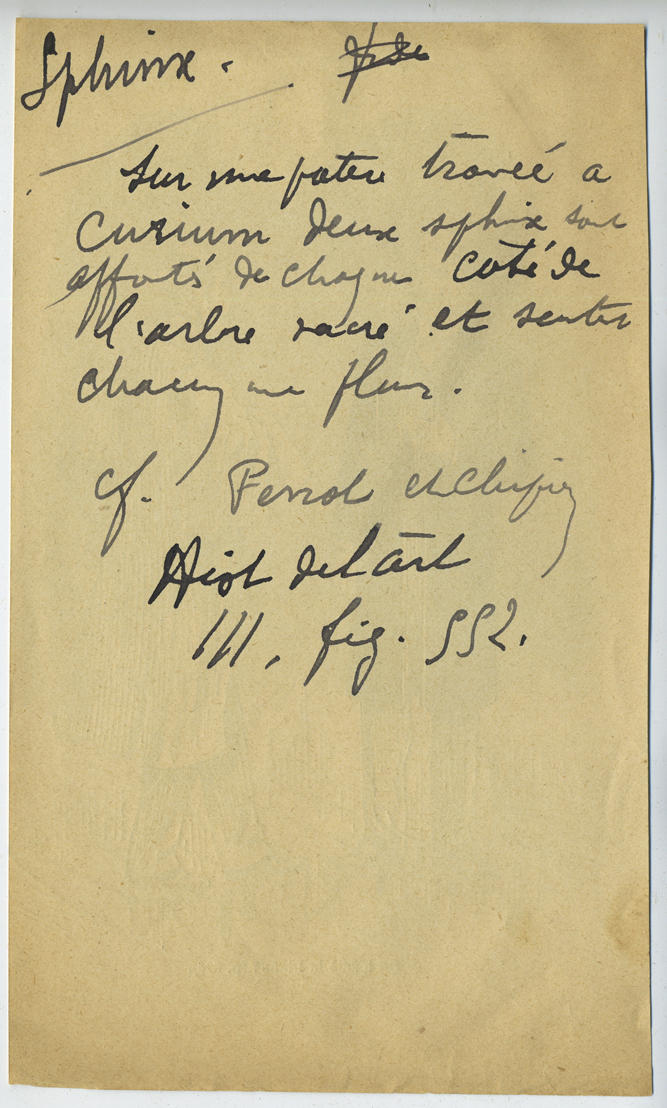 Sphinx.
Sur une patere trouvé a
Curium deux sphinx sont
affrontés de chaque coté de
l'arbre sacré et sentent
chacun une fleur.
cf. Perrot et Chipiez
Hist de l'art
III, fig. 552.